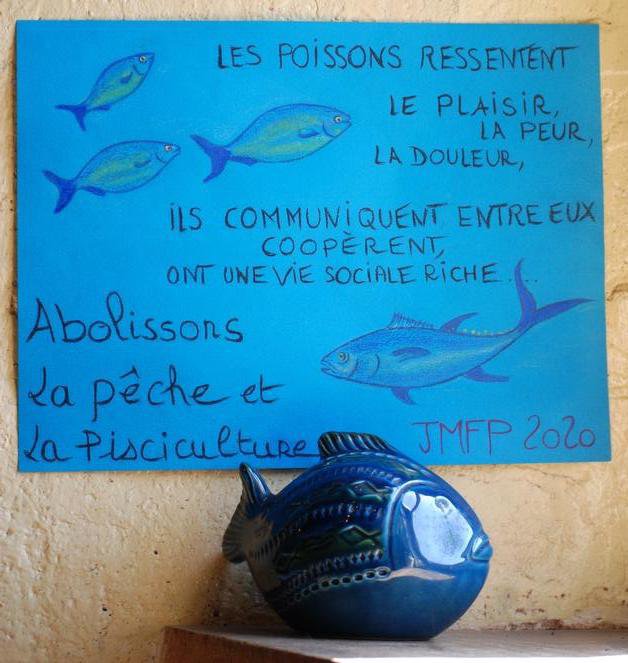 LES POISSONS RESSENTENT
LE PLAISIR,
LA PEUR,
LA DOULEUR,
ILS COMMUNIQUENT ENTRE EUX
COOPÈRENT,
ONT UNE VIE SOCIALE RICHE....
Abolissons
La pêche et
La Pisciculture
JMFP 2020